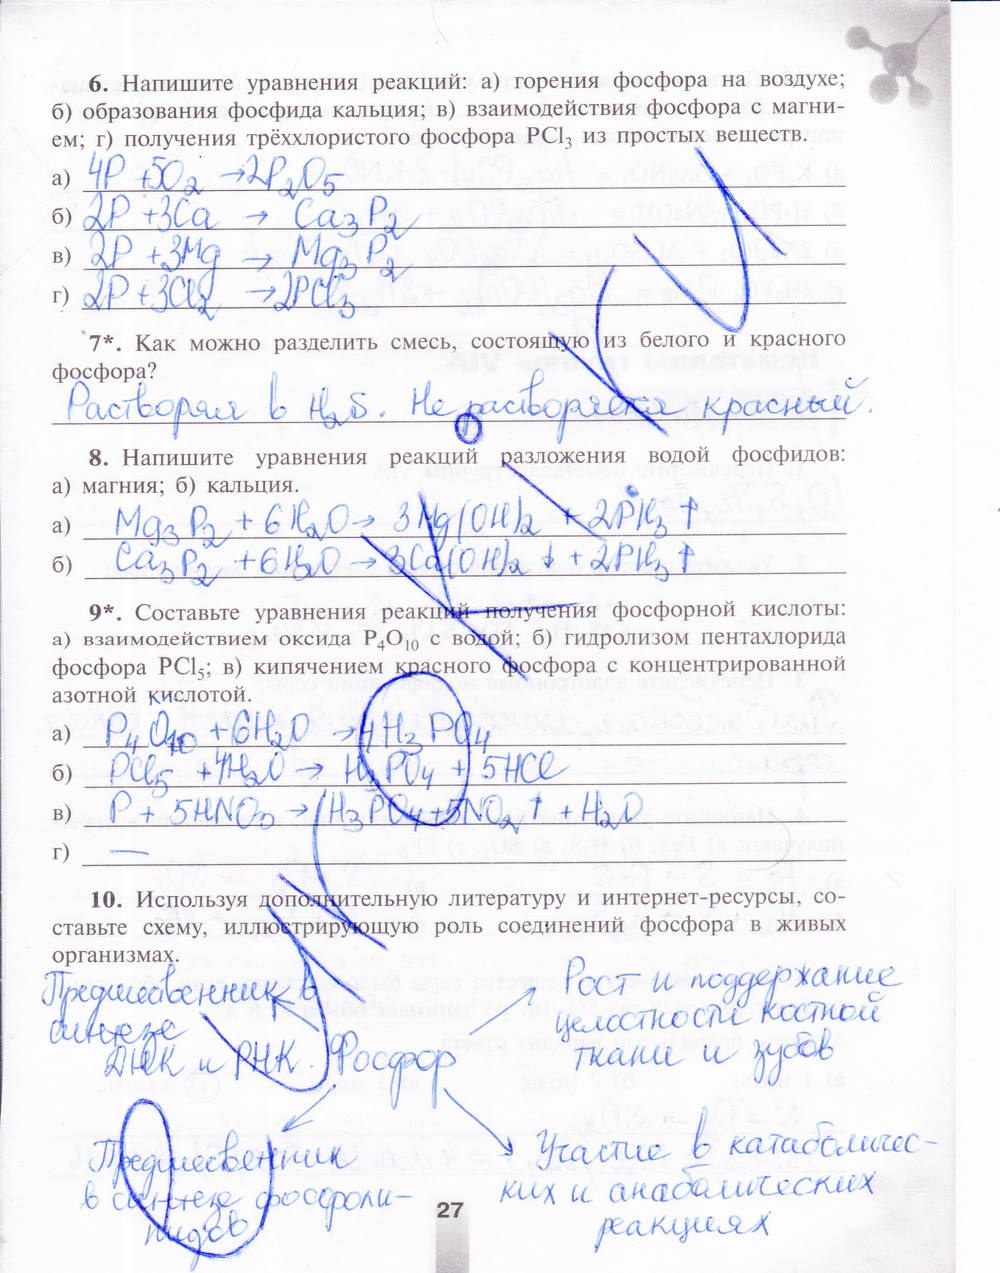 6. Напишите уравнения реакций: а) горения фосфора на воздухе;
б) образования фосфида кальция; в) взаимодействия фосфора с магни-
ем; г) получения трёххлористого фосфора PCl₃ из простых веществ.
а) 4P + 5O₂ → 2P₂O₅
б) 2P + 3Ca → Ca₃P₂
в) 2P + 3Mg → Mg₃P₂
г) 2P + 3Cl₂ → 2PCl₃
7*. Как можно разделить смесь, состоящую из белого и красного
фосфора?
Растворял в H₂S. Не растворяется красный.
8. Напишите уравнения реакций разложения водой фосфидов:
а) магния; б) кальция.
а) Mg₃P₂ + 6H₂O → 3Mg(OH)₂ + 2PH₃↑
б) Ca₃P₂ + 6H₂O → 3Ca(OH)₂↓ + 2PH₃↑
9*. Составьте уравнения реакций получения фосфорной кислоты:
а) взаимодействием оксида P₄O₁₀ с водой; б) гидролизом пентахлорида
фосфора PCl₅; в) кипячением красного фосфора с концентрированной
азотной кислотой.
а) P₄O₁₀ + 6H₂O → 4H₃PO₄
б) PCl₅ + 4H₂O → H₃PO₄ + 5HCl
в) P + 5HNO₃ → H₃PO₄ + 5NO₂↑ + H₂O
г) —
10. Используя дополнительную литературу и интернет-ресурсы, со-
ставьте схему, иллюстрирующую роль соединений фосфора в живых
организмах.
Предшественник в
синтезе
ДНК и РНК
Рост и поддержание
целостности костной
ткани и зубов
Фосфор
Предшественник
в синтезе фосфоли-
пидов
Участие в катаболичес-
ких и анаболических
реакциях
27